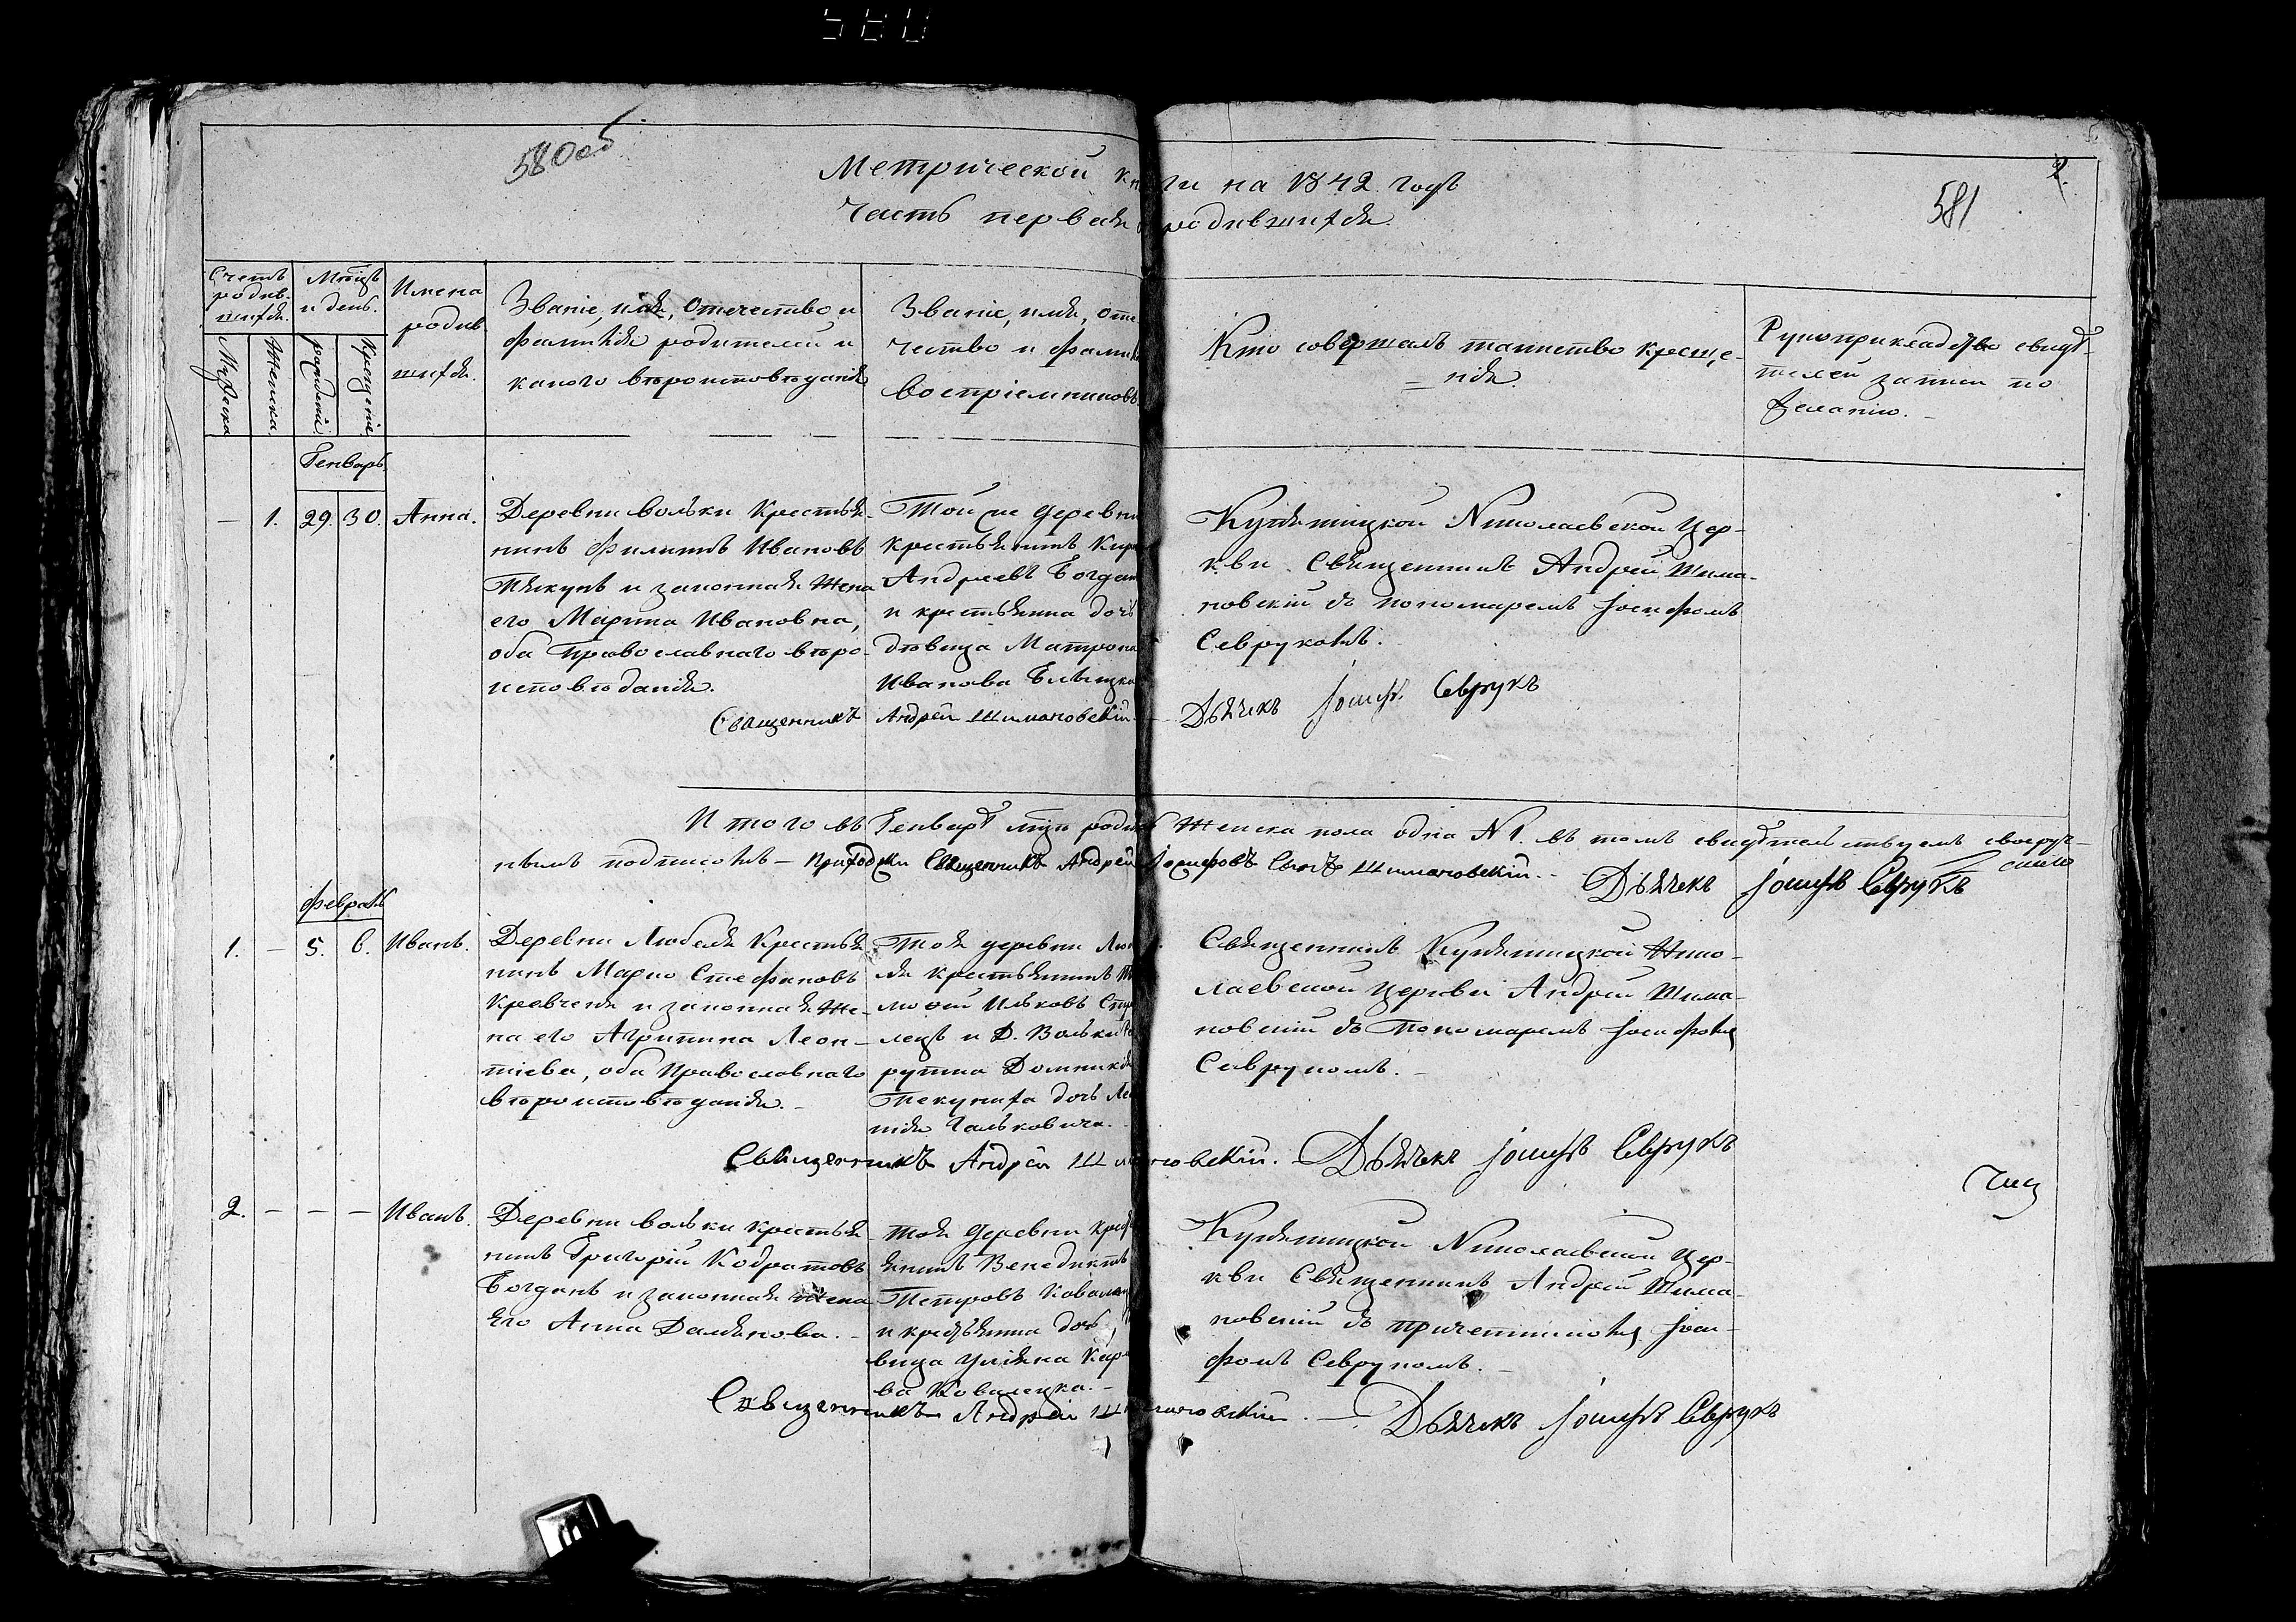 580
580 об
2.
581
Метрической книги на 1842 годъ
Часть первая о родившихся.
Счетъ
родив-
шихся.
Мѣсяцъ
и день.
Имена
родив
шихся.
Званіе, имя, отечество и
фамилія родителей и
какого вѣроисповѣданія
Званіе, имя, оте
чество и фамил
воспріемниковъ
Кто совершалъ таинство креще-
нія.
Рукоприкладство свидѣ-
телей записи по
желанію.
Мужеска
Женска
рожденія
Крещенія
Генварь
— 1. 29. 30. Анна.
Деревни Вольки Крестья-
нинъ Филиппъ Ивановъ
Пякунъ и законная жена
его Марина Ивановна,
оба православнаго вѣро-
исповѣданія.
Той же деревни
крестьянинъ
Андреевъ Богдан
и крестьянина дочь
дѣвица Матрона
Иванова
Купятицкой Николаевской Цер-
кви Священникъ Андрей Шима-
новскій съ пономаремъ Іосифомъ
Севрукомъ.
Священникъ Андрей Шимановскій — Дьячекъ Іосифъ Севрукъ
Итого въ Генварѣ мцѣ родил Женска пола одна N 1. въ томъ свидѣтельствуемъ своеруч-
нымъ подписомъ — Приходскій Священникъ Андрей Іосифовъ Сынъ Шимановскій. — Дьячекъ Іосифъ Севрукъ
Февраль
1. — 5. 6. Иванъ.
Деревни Любеля Крестья
нинъ Марко Стефановъ
Кревченя и законная же-
на его Агрипина Леон-
тіева, оба Православнаго
вѣроисповѣданія. —
Тоя деревни Люб
ля крестьянинъ
моѳій Ильковъ
и Д. Вольки
Домникія
дочь
Священникъ Купятицкой Нико-
лаевской Церкви Андрей Шима-
новскій съ Пономаремъ Іосифомъ
Севрукомъ. —
Священникъ Андрей Шимановскій. Дьячекъ Іосифъ Севрукъ
2. — — — Иванъ.
Деревни Вольки крестья
нинъ Григорій Кодратовъ
Богданъ и законная жена
Его Анна Далянова. —
тоя деревни крест
янинъ Венедиктъ
Петровъ
и крестьянина дочь,
вица Уліяна Кар
ва Ковалецка. —
Купятицкой Николаевской Цер-
кви Священникъ Андрей Шима-
новскій съ причетникомъ Іоси-
фомъ Севрукомъ. —
Священникъ Андрей Шимановскій. — Дьячекъ Іосифъ Севрукъ